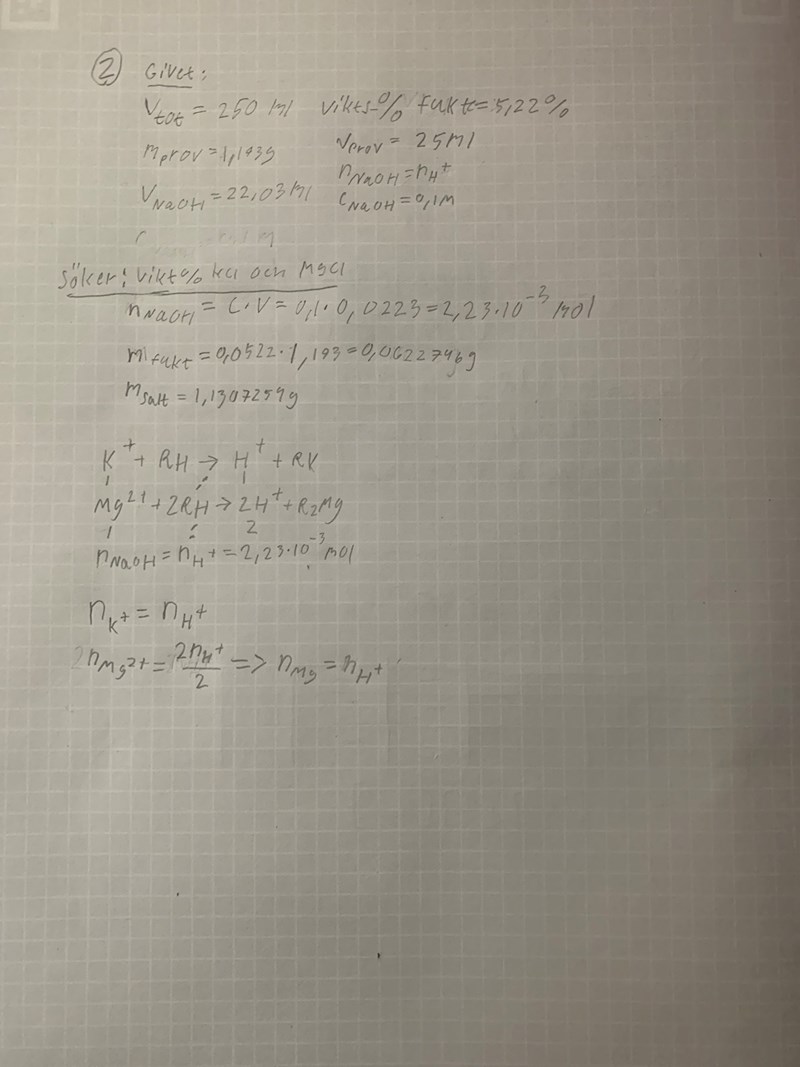 ② Givet:
V_tot = 250 ml vikts-% Fukt = 5,22%
m_prov = 1,193g V_prov = 25ml
V_NaOH = 22,03ml n_NaOH = n_H+
C_NaOH = 0,1M
Söker: vikt% kcl och Mgcl
n_NaOH = C·V = 0,1·0,0223 = 2,23·10^-3 mol
m_fukt = 0,0522·1,193 = 0,0622746g
m_salt = 1,1307259g
K^+ + RH → H^+ + RK
1 1
Mg^2+ + 2RH → 2H^+ + R₂Mg
1 2
n_NaOH = n_H+ = 2,23·10^-3 mol
n_K+ = n_H+
2n_Mg2+ = 2n_H+/2 => n_Mg = n_H+